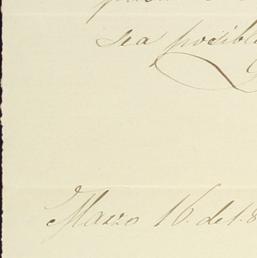 sea posible
Marzo 16. de 18